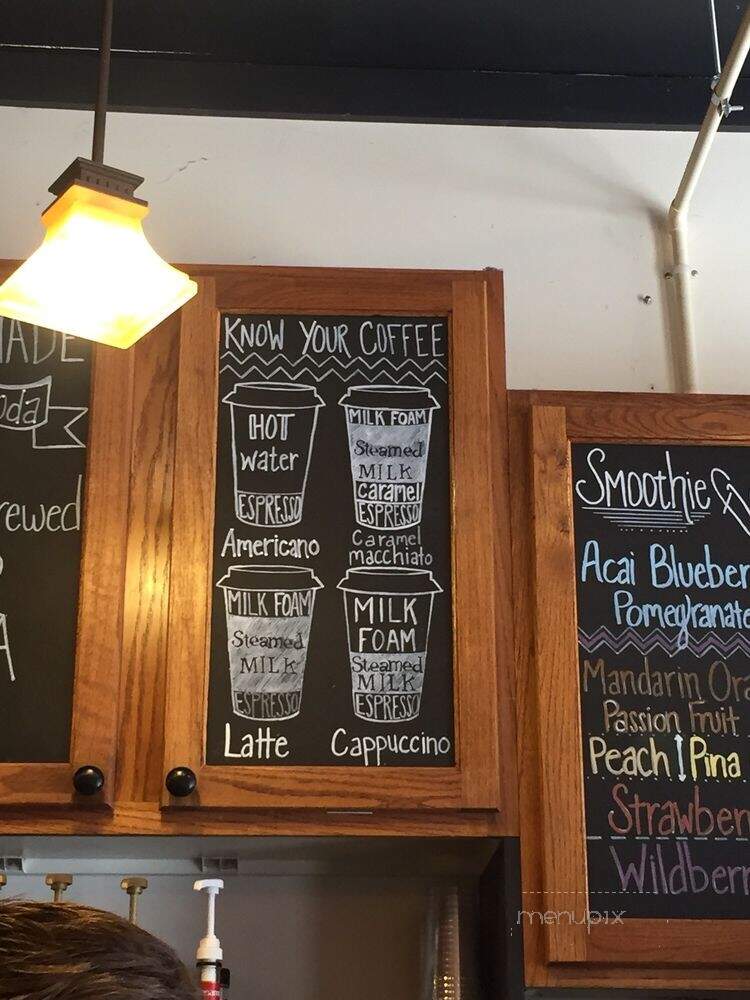 KNOW YOUR COFFEE
HOT
water
ESPRESSO
Americano
MILK FOAM
Steamed
MILK
caramel
ESPRESSO
Caramel
macchiato
MILK FOAM
Steamed
MILK
ESPRESSO
Latte
MILK
FOAM
Steamed
MILK
ESPRESSO
Cappuccino
Smoothie
Acai Blueber
Pomegranate
Mandarin Ora
Passion Fruit
Peach Pina
Strawber
Wildberr
menupix